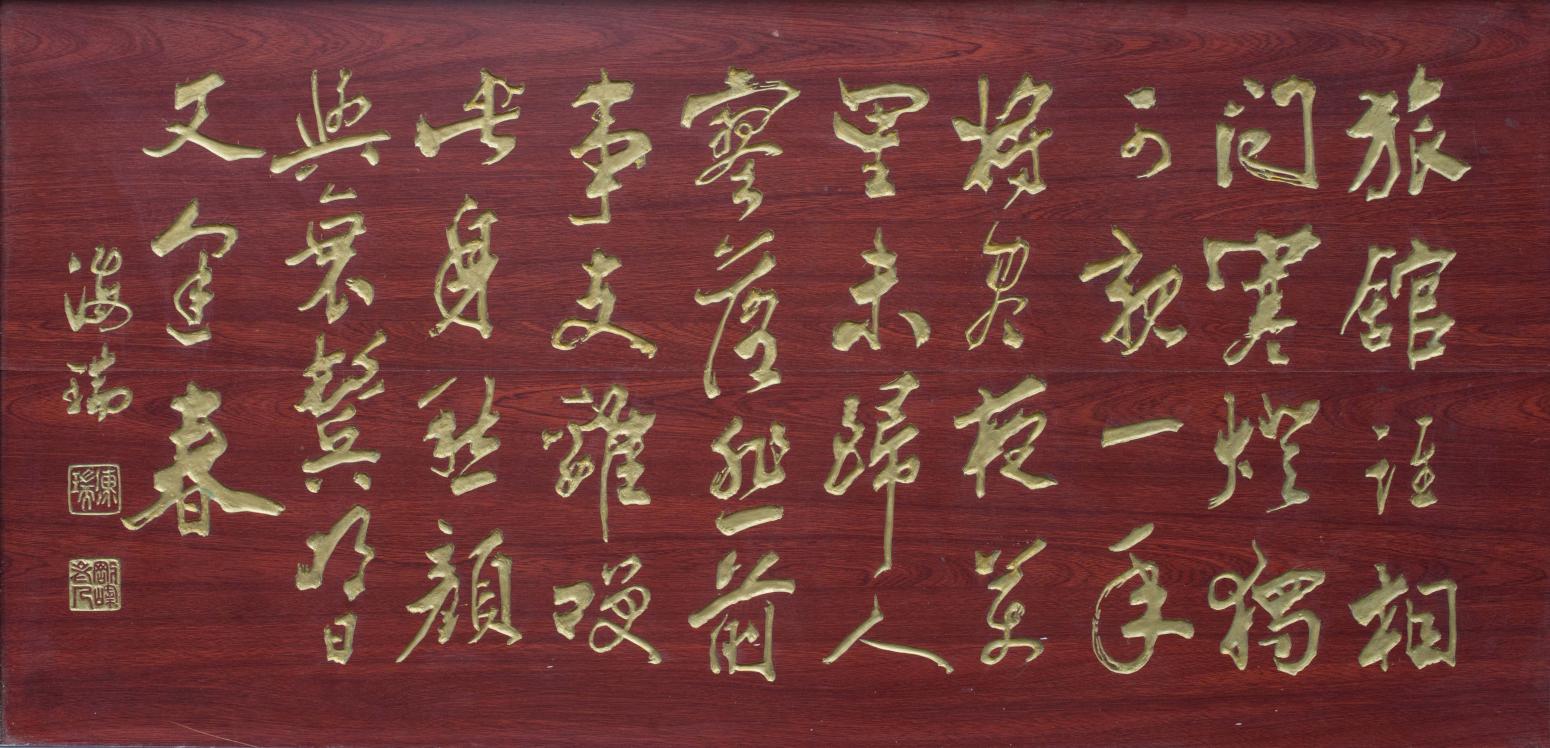 旅館誰相
問寒燈獨
可親一年
將盡夜萬
里未歸人
寥落悲前
事支離
此身愁顏
與衰鬢明日
又逢春
海瑞
剛峰老人